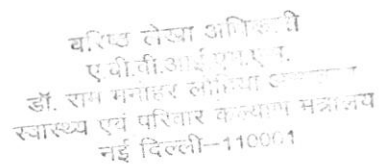 वरिष्ठ लेखा अधिकारी
ए.बी.वी.आई.एम.एस.
डॉ. राम मनोहर लोहिया अस्पताल
स्वास्थ्य एवं परिवार कल्याण मंत्रालय
नई दिल्ली-110001